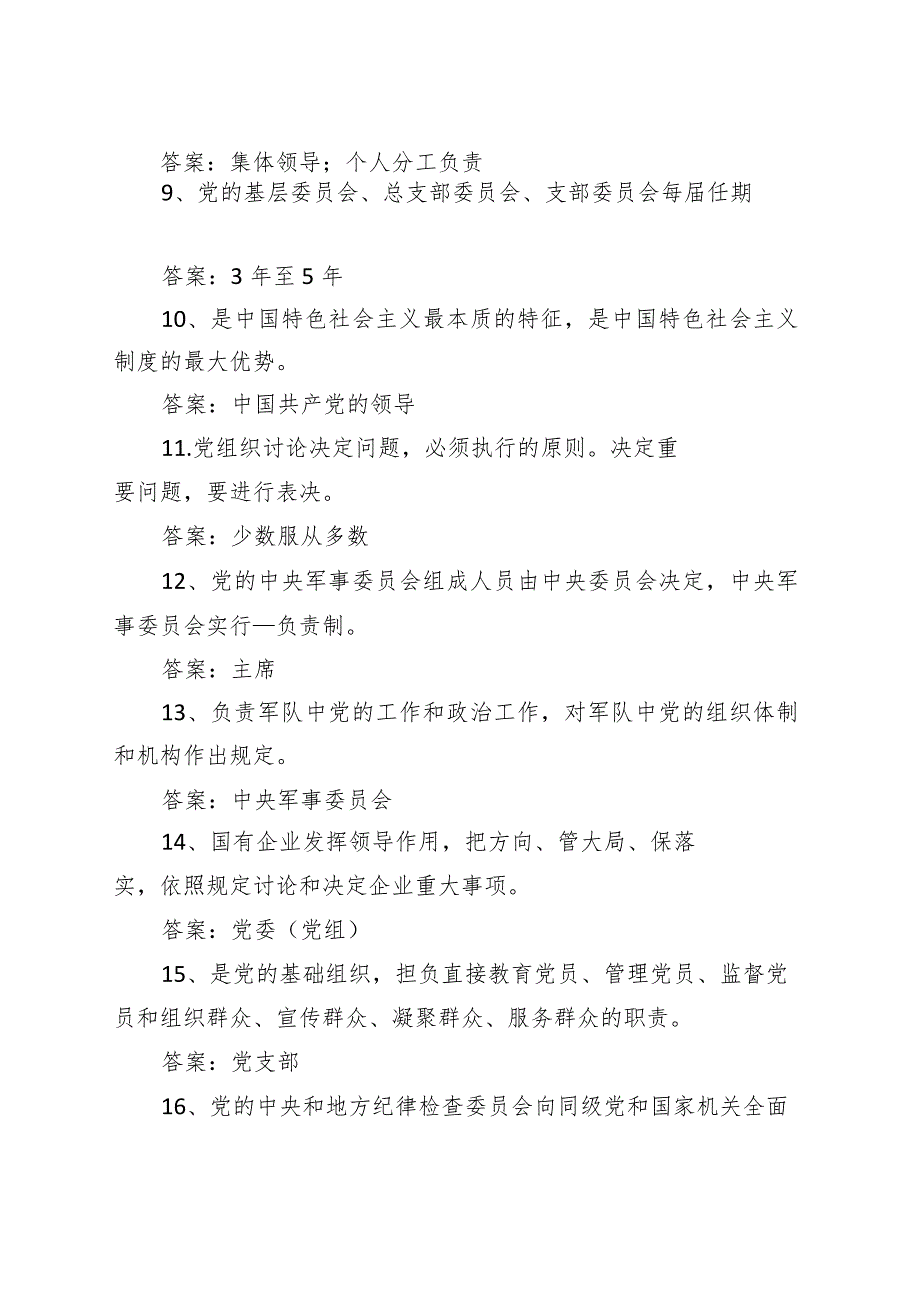 答案：集体领导；个人分工负责
9、党的基层委员会、总支部委员会、支部委员会每届任期
答案：3 年至 5 年
10、是中国特色社会主义最本质的特征，是中国特色社会主义
制度的最大优势。
答案：中国共产党的领导
11.党组织讨论决定问题，必须执行的原则。决定重
要问题，要进行表决。
答案：少数服从多数
12、党的中央军事委员会组成人员由中央委员会决定，中央军
事委员会实行—负责制。
答案：主席
13、负责军队中党的工作和政治工作，对军队中党的组织体制
和机构作出规定。
答案：中央军事委员会
14、国有企业发挥领导作用，把方向、管大局、保落
实，依照规定讨论和决定企业重大事项。
答案：党委（党组）
15、是党的基础组织，担负直接教育党员、管理党员、监督党
员和组织群众、宣传群众、凝聚群众、服务群众的职责。
答案：党支部
16、党的中央和地方纪律检查委员会向同级党和国家机关全面